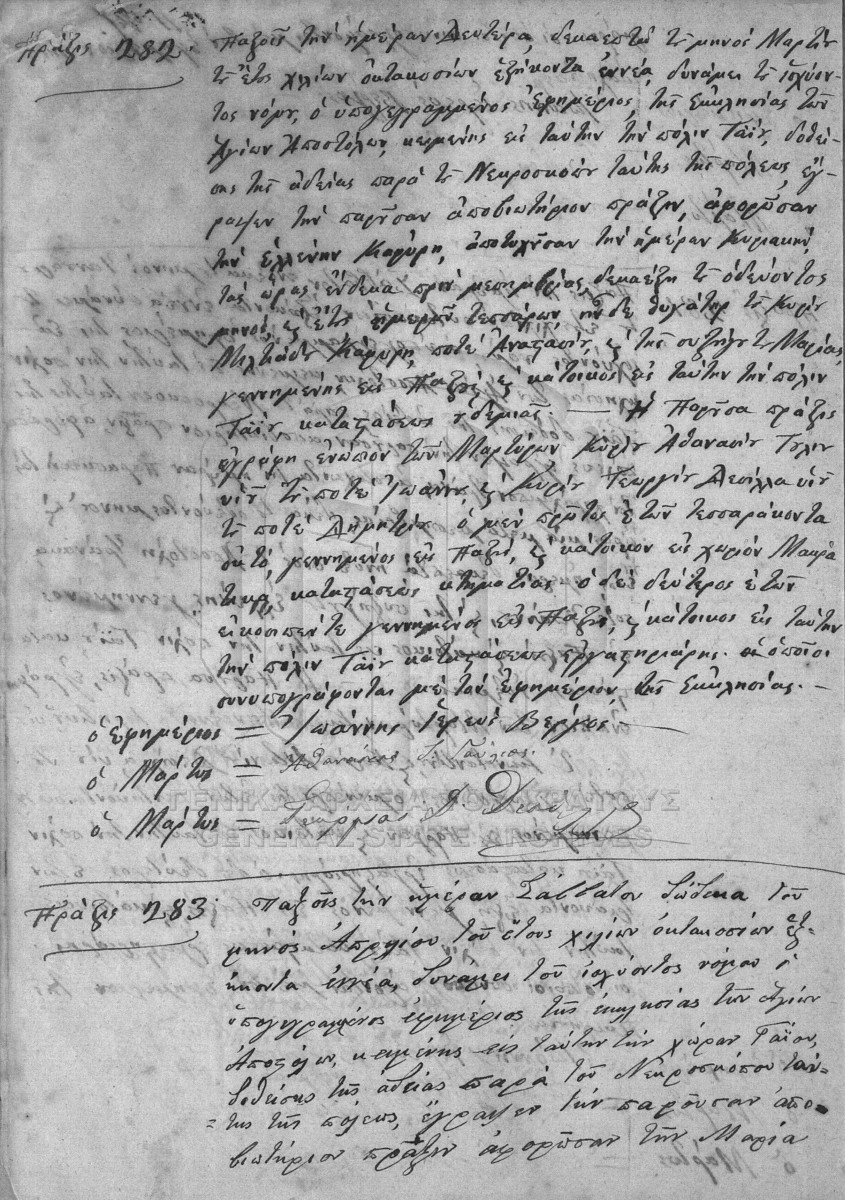 Πράξις 282.
Παξοῖς τὴν ἡμέραν Δευτέρα, δεκαεπτὰ τοῦ μηνὸς Μαρτίου
τοῦ ἔτους χιλίων ὀκτακοσίων ἑξήκοντα ἐννέα, δυνάμει τοῦ ἰσχύον-
τος νόμου, ὁ ὑπογεγραμμένος Ἐφημέριος, τῆς Ἐκκλησίας τῶν
Ἁγίων Ἀποστόλων, κειμένης εἰς ταύτην τὴν πόλιν Γαΐου, δοθεί-
σης τῆς ἀδείας παρὰ τοῦ Νεκροσκόπου ταύτης τῆς πόλεως, ἔγ-
ραψεν τὴν παροῦσαν ἀποβιωτήριον πράξιν, ἀφορῶσαν
τὴν Ἑλλένην Καψύρη, ἀποτυχοῦσαν τὴν ἡμέραν Κυριακὴν,
τὰς ὥρας ἕνδεκα πρὸ μεσημβρίας δεκαέξη τοῦ ὁδεύοντος
μηνός, ἔτους ἡμερῶν τεσσάρων, ἦν δὲ θυγάτηρ τοῦ Κυρίου
Μιλτιάδου Καψύρη, ποτὲ Ἀναστασίου, καὶ τῆς συζήγου του Μαρίας,
γεννημένης εἰς Παξοὺς καὶ κάτοικος εἰς ταύτην τὴν πόλιν
Γαΐου καταστάσεως οὐδεμιᾶς. — Ἡ Παροῦσα πράξις
ἐγράφη ἐνώπιον τῶν Μαρτύρων Κυρίου Ἀθανασίου
υἱοῦ τοῦ ποτὲ Ἰωάννου, καὶ Κυρίου Γεωργίου υἱοῦ
τοῦ ποτὲ Δημητρίου ὁ μὲν πρῶτος ἐτῶν τεσσαράκοντα
ὀκτὸ, γεννημένος εἰς Παξοὺς, καὶ κάτοικον εἰς χωρίον Μακρά
τικα, καταστάσεως κτηματίας ὁ δὲ δεύτερος ἐτῶν
εἰκοσιπέντε γεννημένος εἰς Παξοὺς, καὶ κάτοικος εἰς ταύτην
τὴν πόλιν Γαΐου καταστάσεως ἐργαστηριάρης. οἱ ὁποῖοι
συνυπογράφονται μὲ τὸν ἐφημέριον τῆς Ἐκκλησίας. —
ὁ Ἐφημέριος = Ἰωάννης Ἱερεὺς Βεργος.
ὁ Μάρτυς = Ἀθανάσιος
ὁ Μάρτυς = Γεώργιος Δ.
ΓΕΝΙΚΑ ΑΡΧΕΙΑ ΤΟΥ ΚΡΑΤΟΥΣ
GENERAL STATE ARCHIVES
Πράξις 283.
Παξοῖς τὴν ἡμέραν Σάββατον δώδεκα τοῦ
μηνὸς Ἀπριλίου τοῦ ἔτους χιλίων ὀκτακοσίων ἑξ-
ήκοντα ἐννέα, δυνάμει τοῦ ἰσχύοντος νόμου ὁ
ὑπογεγραμμένος ἐφημέριος τῆς ἐκκλησίας τῶν Ἁγίων
Ἀποστόλων, κειμένης εἰς ταύτην τὴν χώραν Γαΐου,
δοθείσης τῆς ἀδείας παρὰ τοῦ Νεκροσκόπου ταύ-
της τῆς πόλεως, ἔγραψεν τὴν παροῦσαν ἀπο-
βιωτήριον πράξιν ἀφορῶσαν τὴν Μαρία